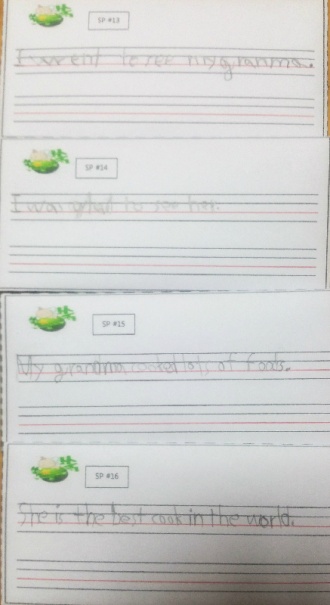 SP #13
I went to see my granma.
SP #14
I was to see her.
SP #15
My grandma cooked lots of foods.
SP #16
She is the best cook in the world.